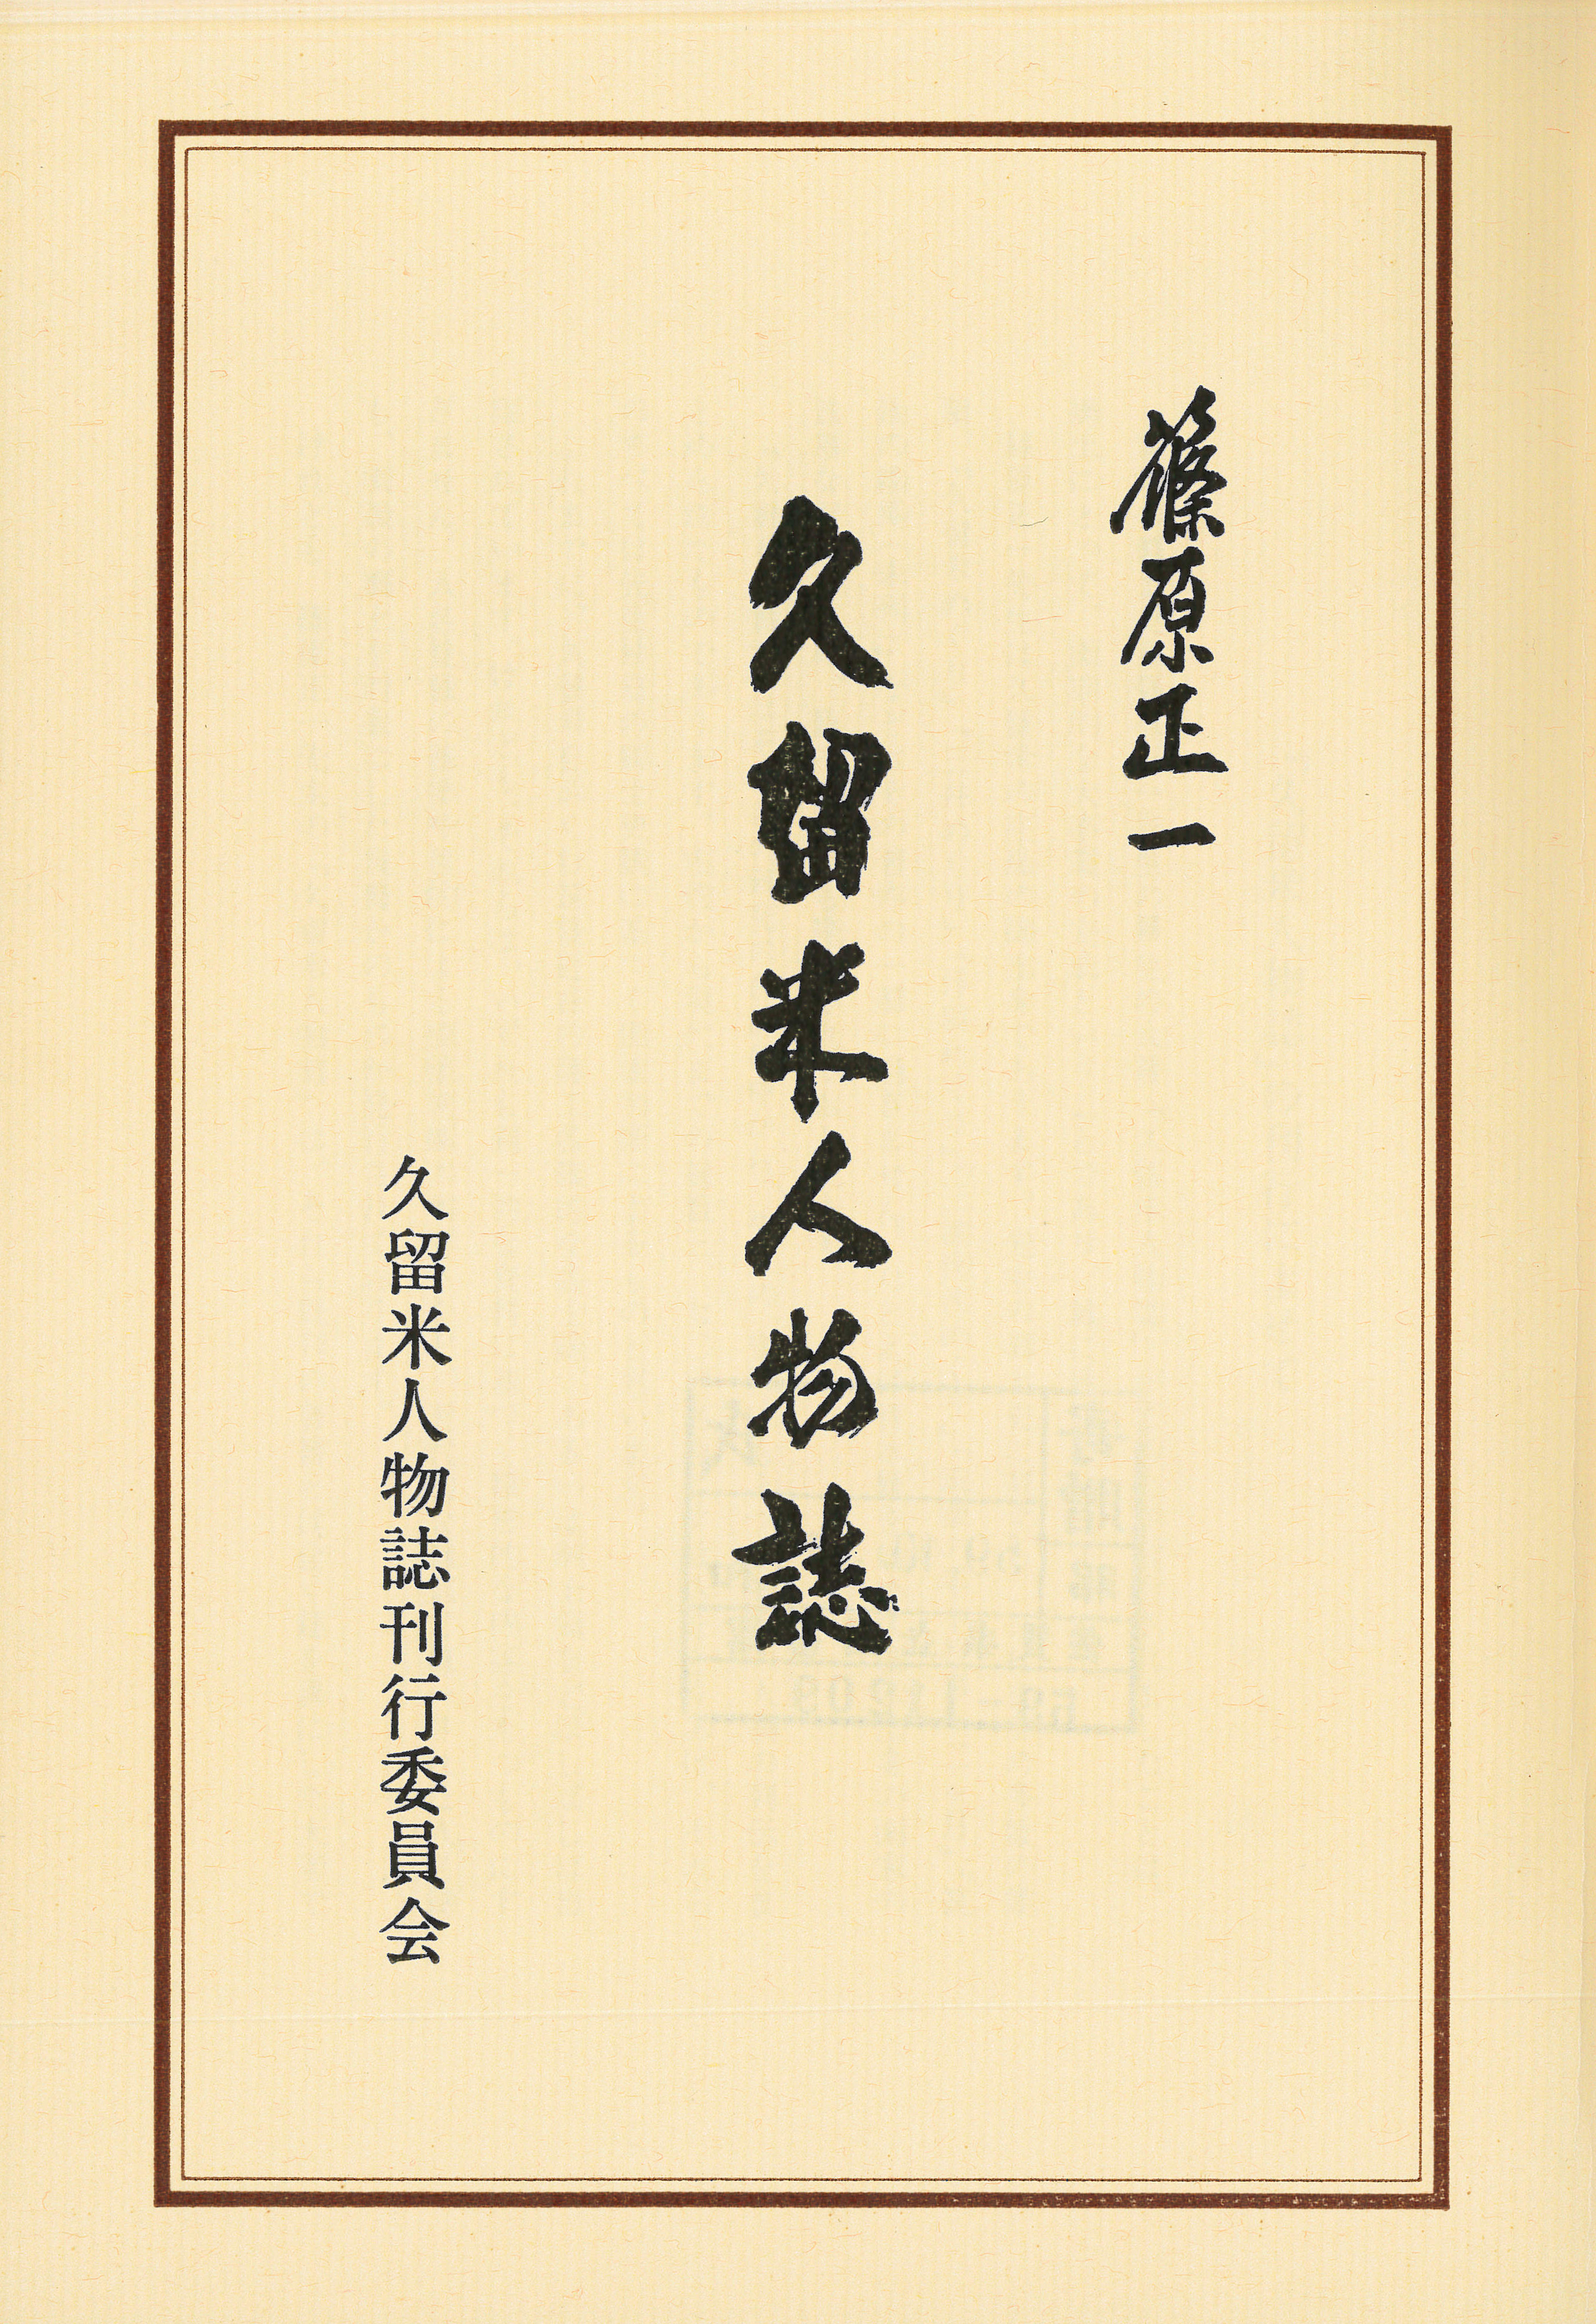 篠原正一
久留米人物誌
久留米人物誌刊行委員会